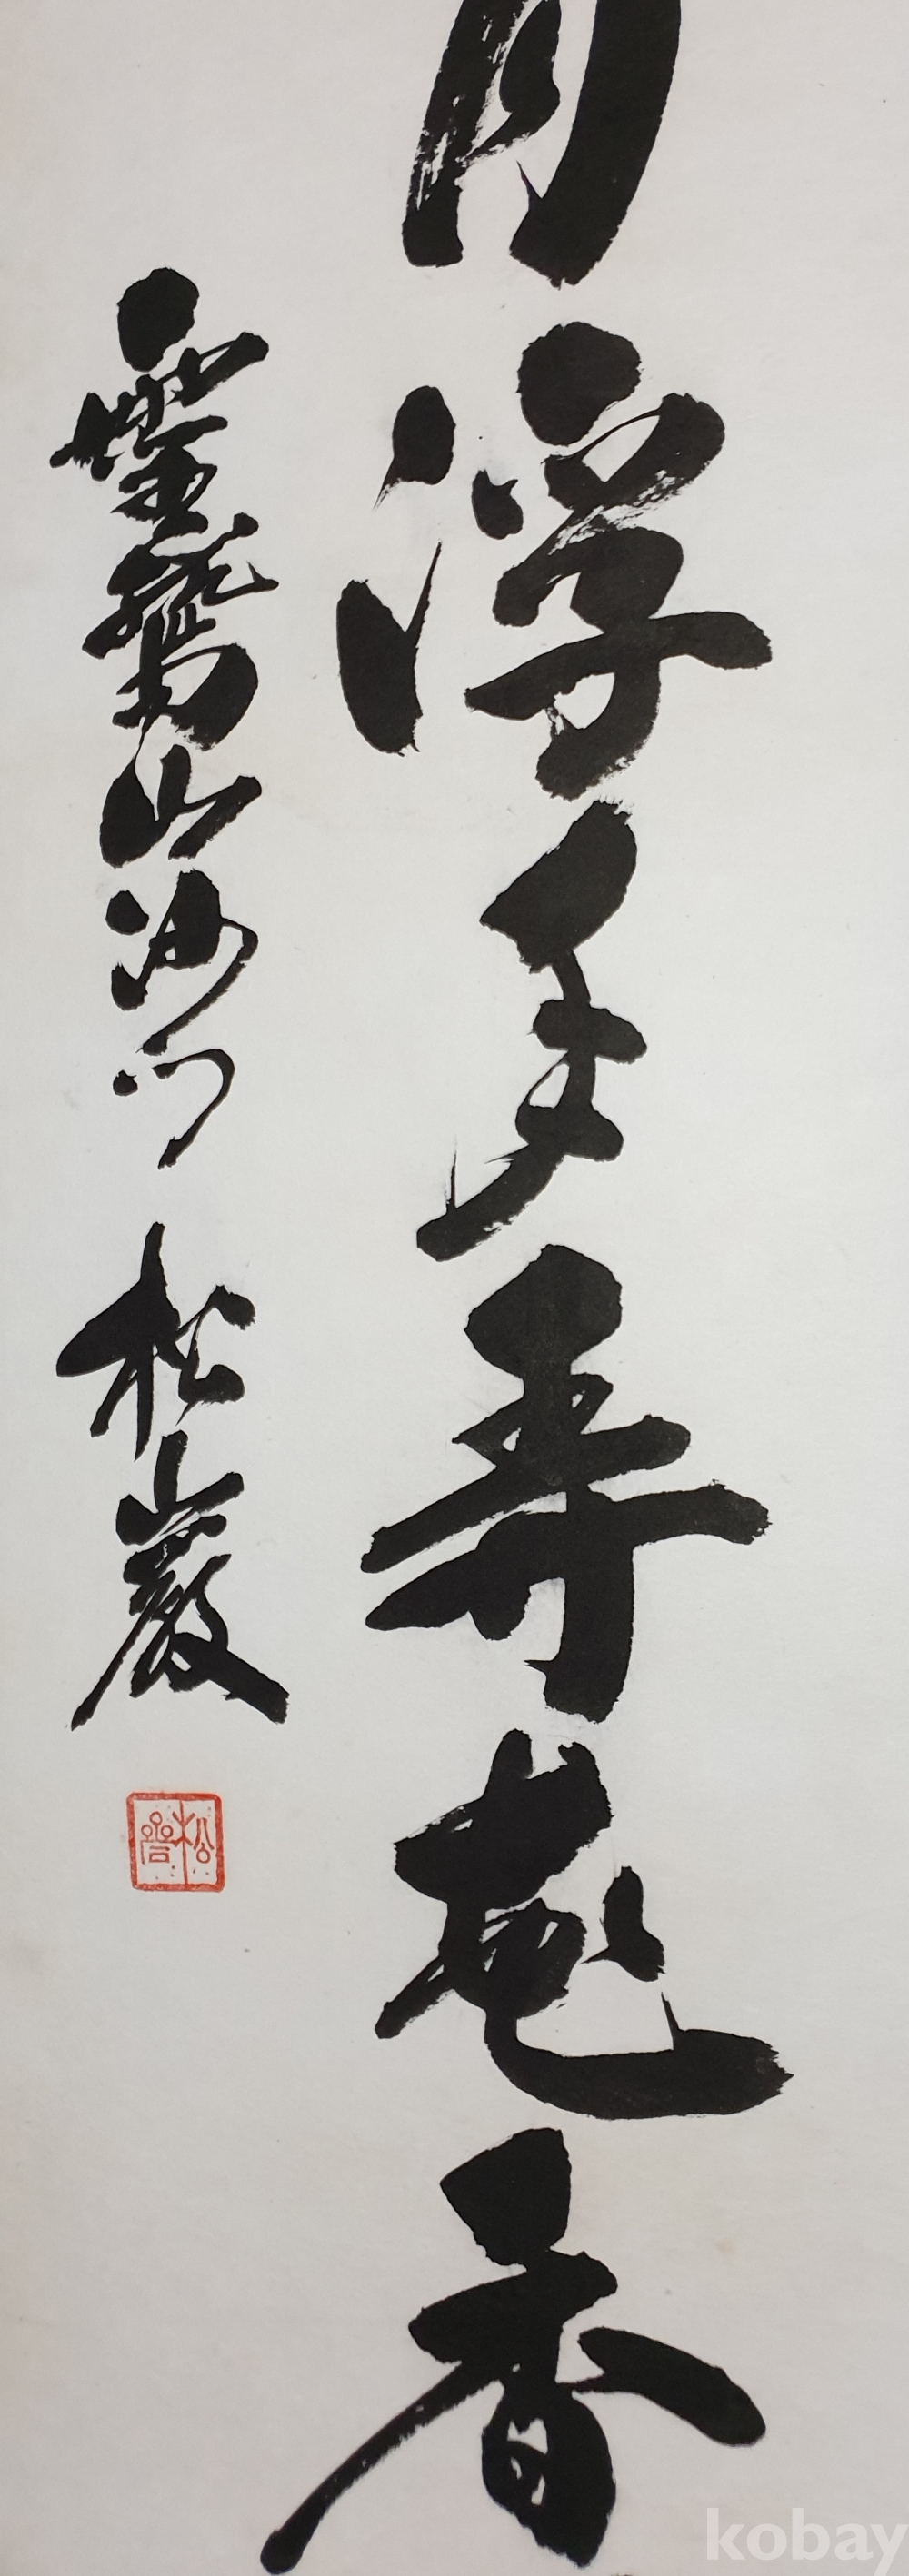 月浮手弄花香
靈鷲山沙門 松岩巖
松岩
kobay